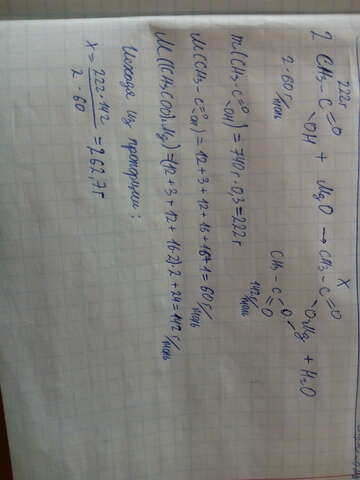 222г X
2 CH₃ – C =O OH + MgO → CH₃ – C =O O Mg + H₂O
2·60 г/моль CH₃ – C O =O 142 г/моль
m(CH₃ – C =O OH) = 740г · 0,3 = 222г
M(CH₃ – C =O OH) = 12+3+12+16+16+1=60 г/моль
M((CH₃COO)₂Mg)=(12+3+12+16·2)·2+24=142 г/моль
Исходя из пропорции:
X = 222·142 / 2·60 = 262,7г